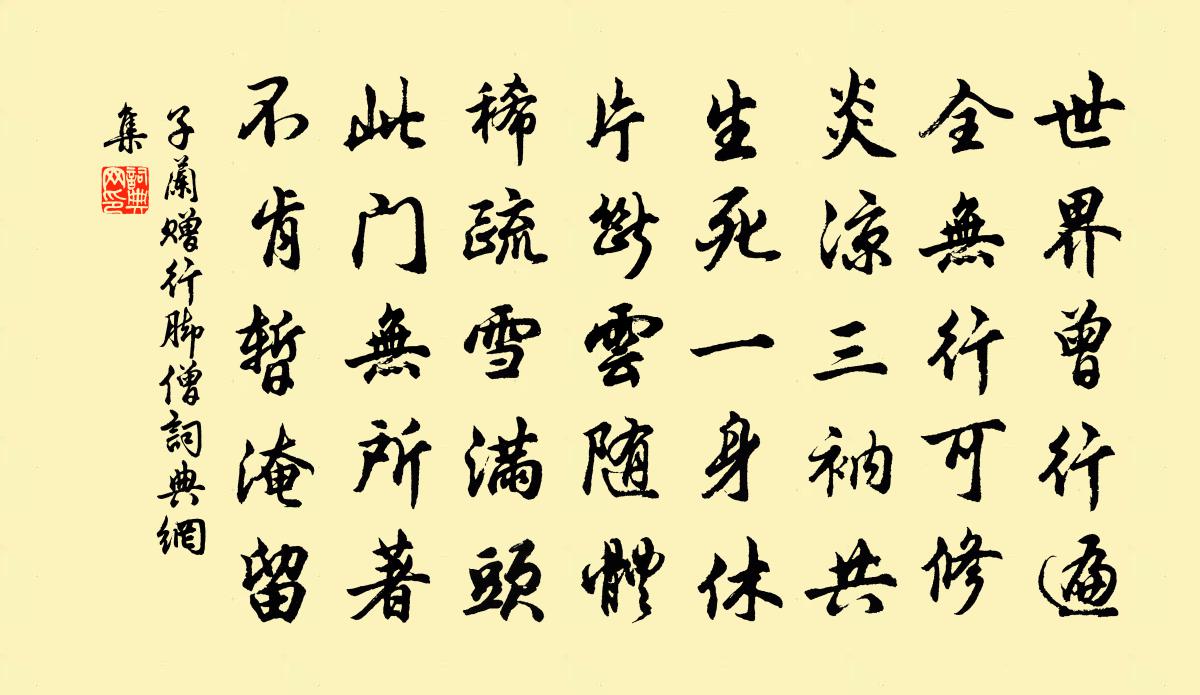 世界曾行遍
全無行可修
炎涼三衲共
生死一身休
片斷雲隨體
稀疏雪滿頭
此門無所著
不肯暫淹留
子蘭贈行脚僧詞典網
集
詞典網印